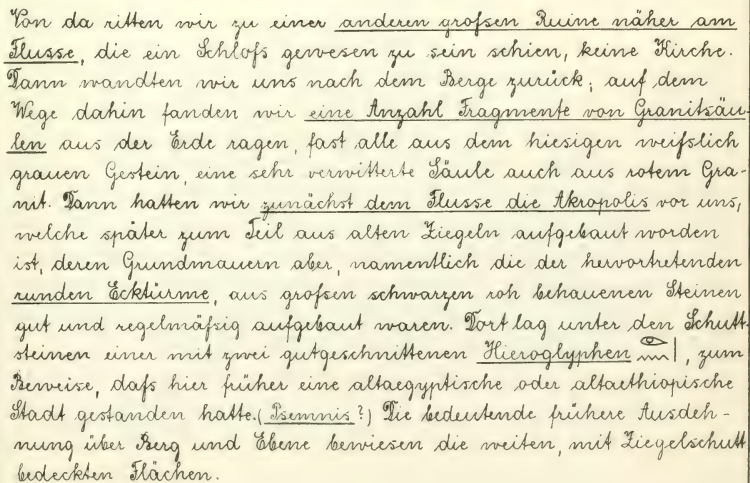 Von da ritten wir zu einer anderen großen Ruine näher am
Flusse, die ein Schloß gewesen zu sein schien, keine Kirche.
Dann wandten wir uns nach dem Berge zurück; auf dem
Wege dahin fanden wir eine Anzahl Fragmente von Granitsäu-
len aus der Erde ragen, fast alle aus dem hiesigen weißlich
grauen Gestein, eine sehr verwitterte Säule auch aus rotem Gra-
nit. Dann hatten wir zunächst dem Flusse die Akropolis vor uns,
welche später zum Teil aus alten Ziegeln aufgebaut worden
ist, deren Grundmauern aber, namentlich die der hervortretenden
runden Ecktürme, aus großen schwarzen roh behauenen Steinen
gut und regelmäßig aufgebaut waren. Dort lag unter den Schutt-
steinen einer mit zwei gutgeschnittenen Hieroglyphen 𓂋𓈖𓏤, zum
Beweise, daß hier früher eine altaegyptische oder altaethiopische
Stadt gestanden hatte. (Psemnis?) Die bedeutende frühere Ausdeh-
nung über Berg und Ebene bewiesen die weiten, mit Ziegelschutt
bedeckten Flächen.